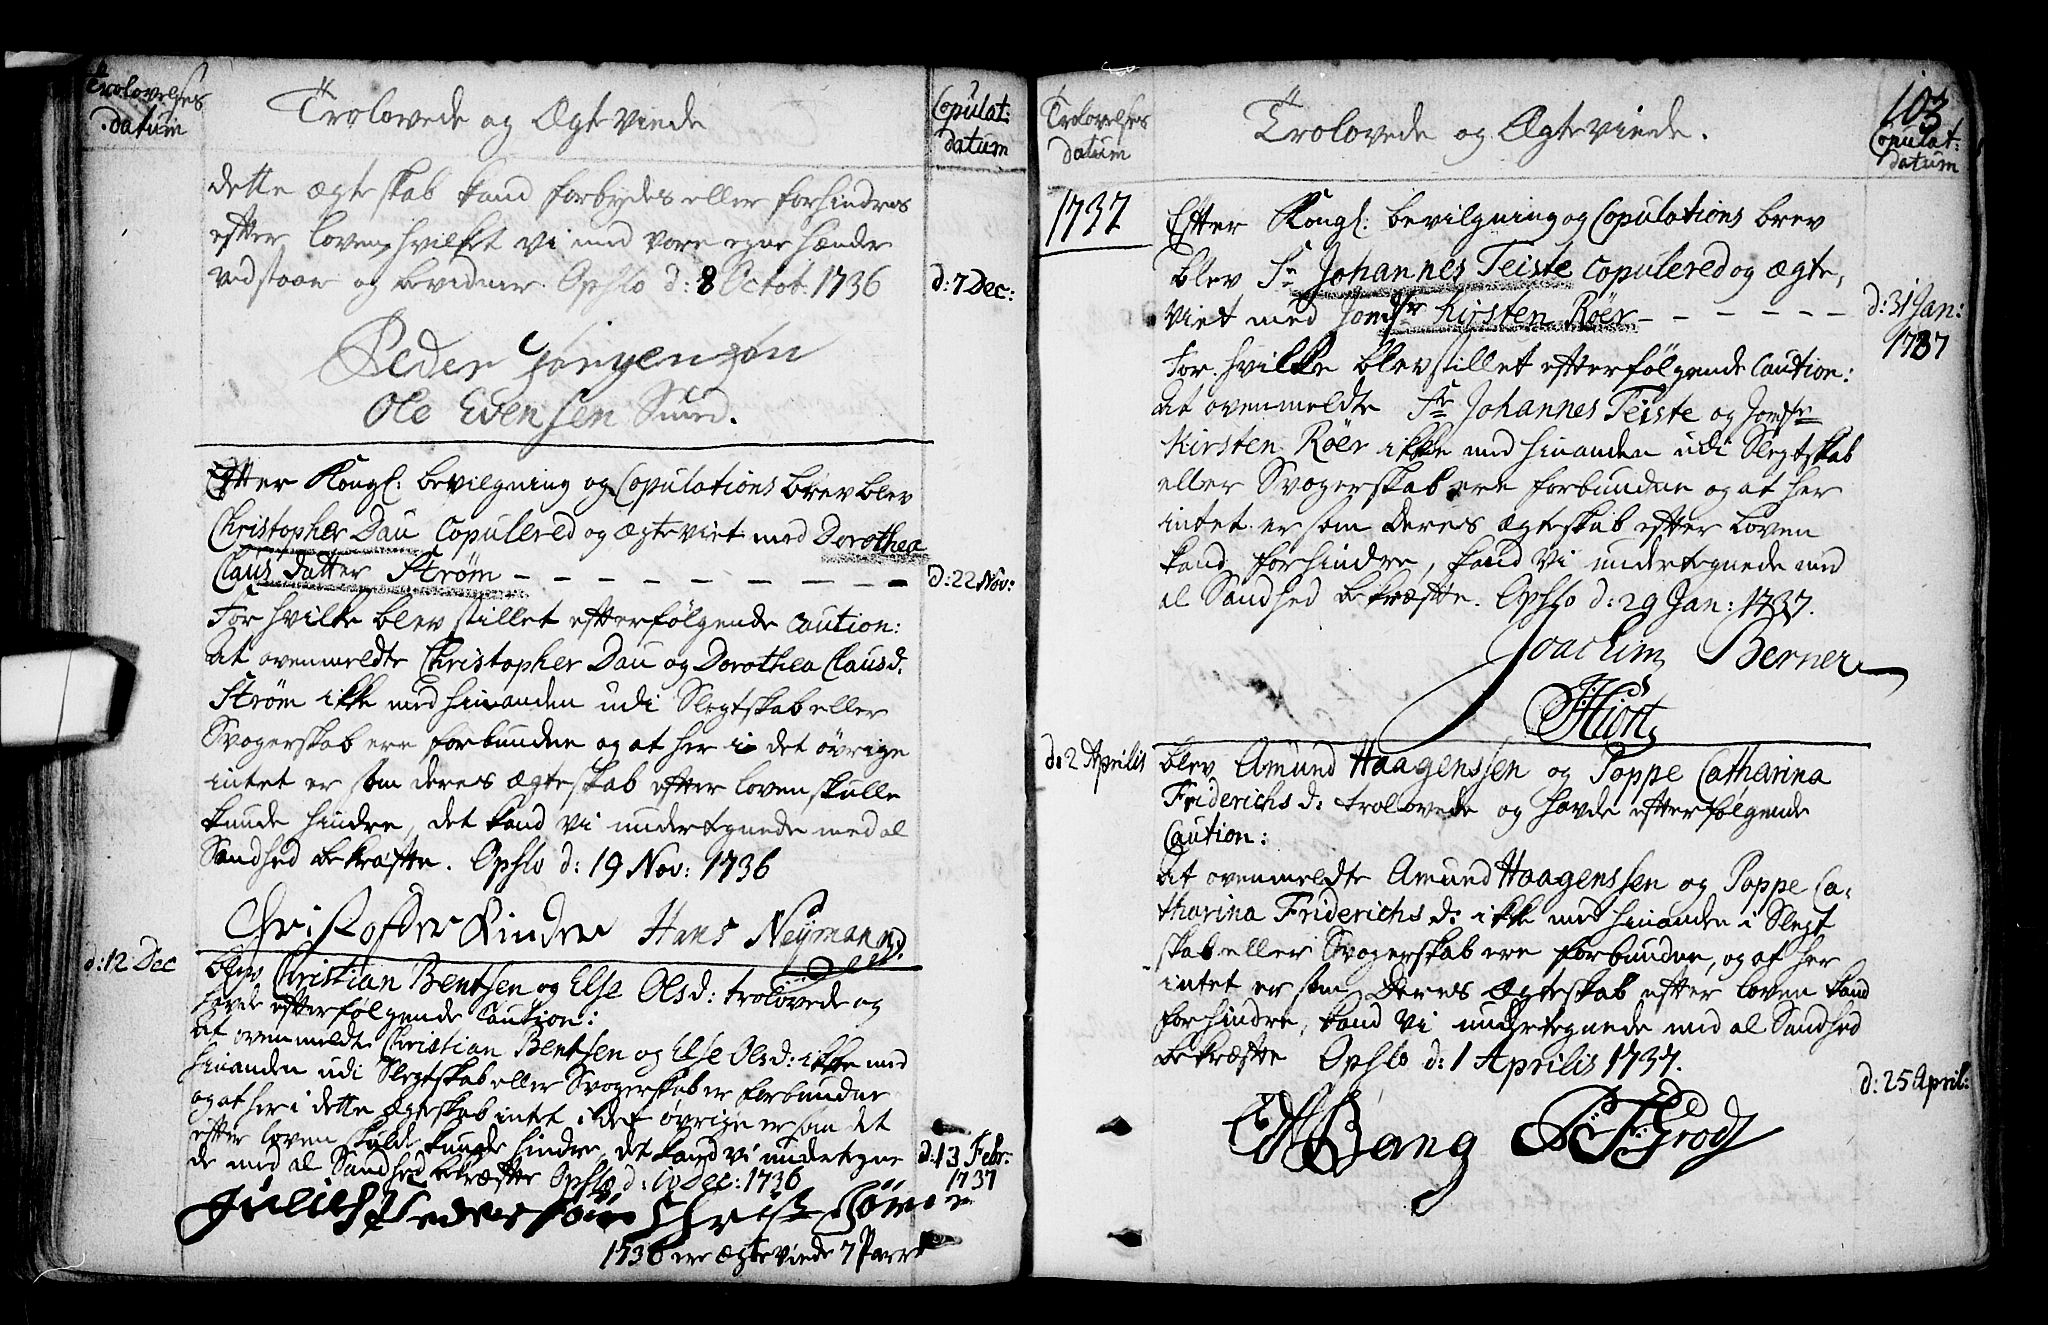 Trolovelses
datum
Trolovede og Ægte Viede
Copulat:
datum
dette ægteskab kand forbydes eller forhindres
efter loven, hvilket vi med vore egne hænder
vedstaae og bevidner. Opslo d: 8 Octob: 1736
d: 7 Dec:
Peder Jörgensön
Ole Evensen Suurd.
Efter Kongl: bevilgning og Copulations brev blev
Christopher Dau Copulered og ægteviet med Dorothea
Claus datter Strøm
d: 22 Nov:
For hvilke blev stillet efterfølgende Caution:
At ovenmeldte Christopher Dau og Dorothea Clausd.
Strøm ikke med hinanden udi Slegtskab eller
Svogerskab ere forbundne og at her i det øvrige
intet er som deres ægteskab efter loven skulle
kunde hindre, det kand vi undertegnede med al
Sandhed bekræfte. Opslo d: 19 Nov: 1736
Christoffer Hans Neÿmann
d: 12 Dec
blev Christian Bentsen og Else Olsd: trolovede og
havde efterfølgende Caution:
At ovenmeldte Christian Bentsen og Else Olsd: ikke med
hinanden udi Slegtskab eller Svogerskab er forbundne
og at her i dette ægteskab intet i det øvrige er som det
efter loven skulde kunde hindre, det kand vi undertegne
de med al Sandhed bekræfte Opslo d: 10 Dec: 1736
d: 13 Febr:
1737
1736 ere ægteviede 7 Parr
103
Trolovelses
datum
Trolovede og Ægteviede.
Copulat:
datum
1737
Efter Kongl: bevilgning og Copulations brev
blev Sr Johannes Teiste Copulered og ægte,
viet med Jomfr Kirsten Röer
d: 31 Jan:
1737
For hvilke blev stillet efterfølgende Caution:
At ovenmeldte Sr Johannes Teiste og Jomfr
Kirsten Röer ikke med hinanden udi Slegtskab
eller Svogerskab ere forbundne og at her
intet er som deres ægteskab efter loven
kand forhindre, kand vi undertegnede med
al Sandhed bekræfte. Opslo d: 29 Jan: 1737.
Joachim Berner
Hiort
d: 2 Aprilis
blev Amund Haagenssen og Poppe Catharina
Friderichs d: trolovede og havde efterfølgende
Caution:
At ovenmeldte Amund Haagenssen og Poppe Ca-
tharina Friderichs d: ikke med hinanden i Slegt
skab eller Svogerskab ere forbundne, og at her
intet er som deres ægteskab efter loven kand
forhindre, kand vi undertegnede med al Sandhed
bekræfte Opslo d: 1 Aprilis 1737.
d: 25 April:
Bang